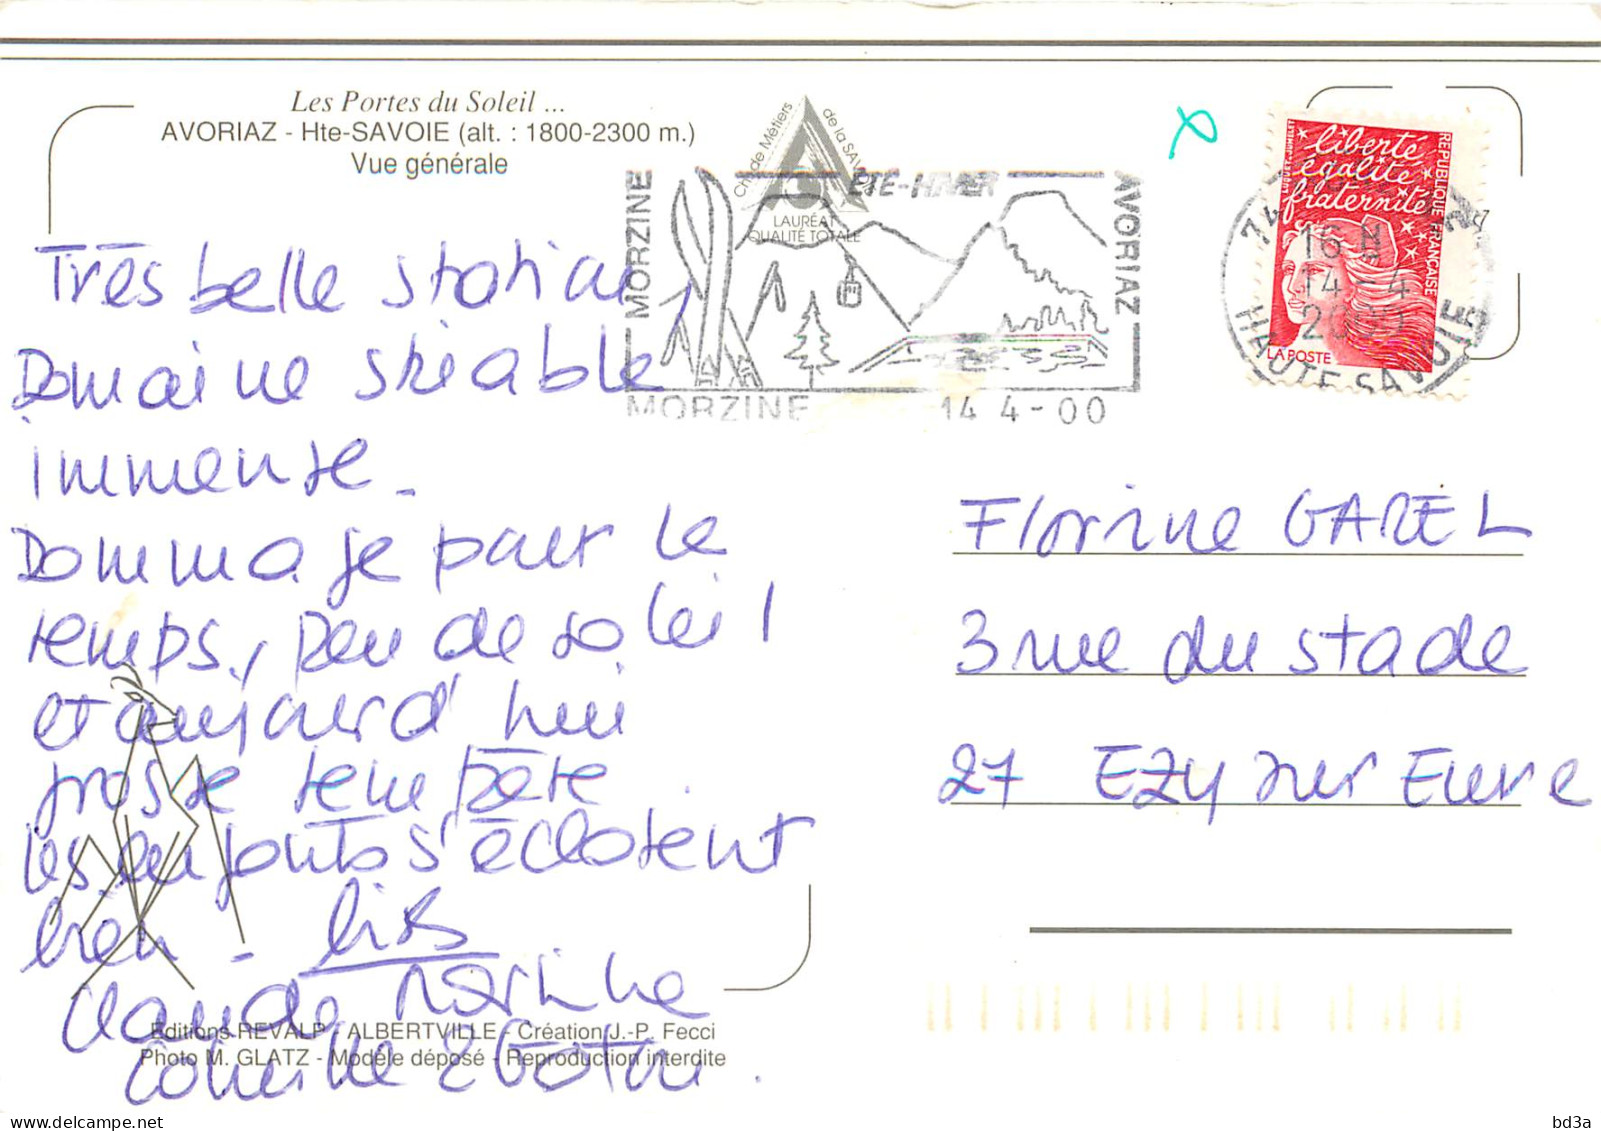 Les Portes du Soleil ...
AVORIAZ - Hte-SAVOIE (alt. : 1800-2300 m.)
Vue générale
Ch. de Métiers de la SAVOIE
LAURÉAT
QUALITÉ TOTALE
MORZINE
ÉTÉ-HIVER
AVORIAZ
MORZINE 14 4-00
liberté
égalité
fraternité
RÉPUBLIQUE FRANÇAISE
LA POSTE
74
16 H
14-4
2000
HAUTE SAVOIE
Très belle station,
Domaine skiable
immense.
Dommage pour le
temps, peu de soleil
et aujourd'hui
grosse tempête.
Les enfants s'éclatent
bien. bises
Claude Martine
Editions REVALP - ALBERTVILLE - Création J.-P. Fecci
Photo M. GLATZ - Modèle déposé - Reproduction interdite
Florine GAREL
3 rue du stade
27 EZY sur Eure
delcampe.net
bd3a